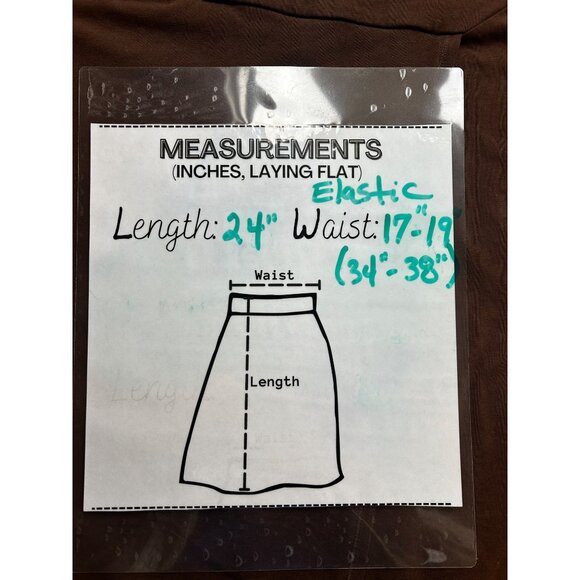 MEASUREMENTS
(INCHES, LAYING FLAT)
Elastic
Length: 24" Waist: 17"-19"
(34"-38")
Waist
Length